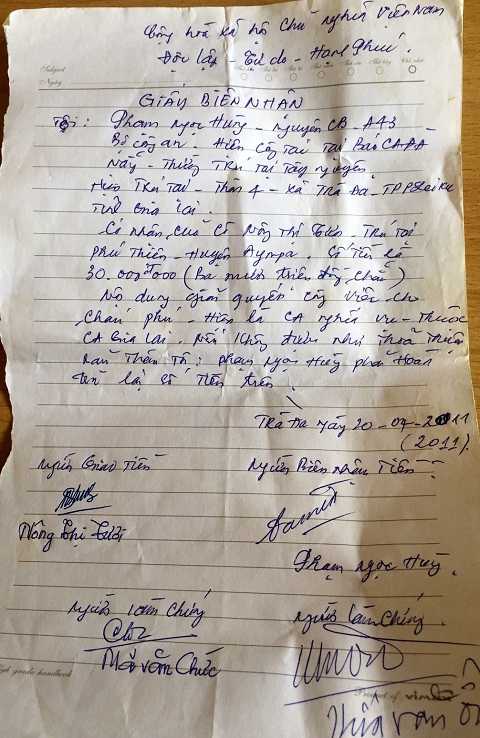 Cộng hoà xã hội Chủ nghĩa Việt Nam
Độc lập - Tự do - Hạnh Phúc.
Subject
Ngày
GIẤY BIÊN NHẬN
Tôi: Phạm Ngọc Hùng - Nguyên CB - A43 -
Bộ Công an. Hiện Công tác tại Báo CAĐN
Thường Trú tại Tây nguyên.
Hiện Trú tại - Thôn 4 - xã Trà Đa - TP Pleiku
Tỉnh Gia Lai.
Có nhận của Cô Nông Thị Tươi - Trú tại
Phú Thiện - Huyện Ayunpa. Số Tiền là
30.000đ000 (Ba mươi triệu đồng chẵn)
Nội dung giải quyết công việc cho
Hiện là CA nghĩa vụ - Thuộc
CA Gia Lai. Nếu không được như Thoả Thuận
Phạm Ngọc Hùng phải Hoàn
lại số Tiền trên.
Trà Đa ngày 20-07-2011
(2011).
Người Giao Tiền
Người Biên nhận Tiền.
Nông Thị Tươi
Phạm Ngọc Hùng.
Người Làm Chứng
Người làm Chứng.
văn Chức
High grade handbook
Product of